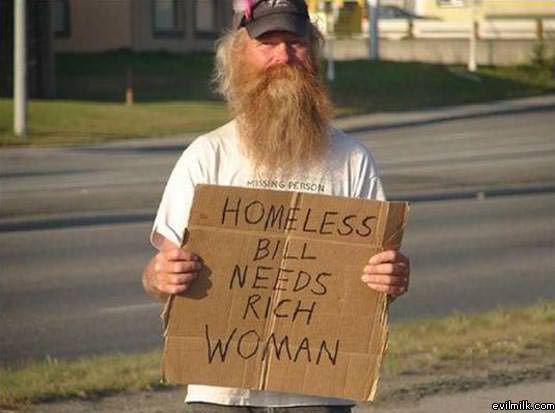 MISSING PERSON
HOMELESS
BILL
NEEDS
RICH
WOMAN
evilmilk.com